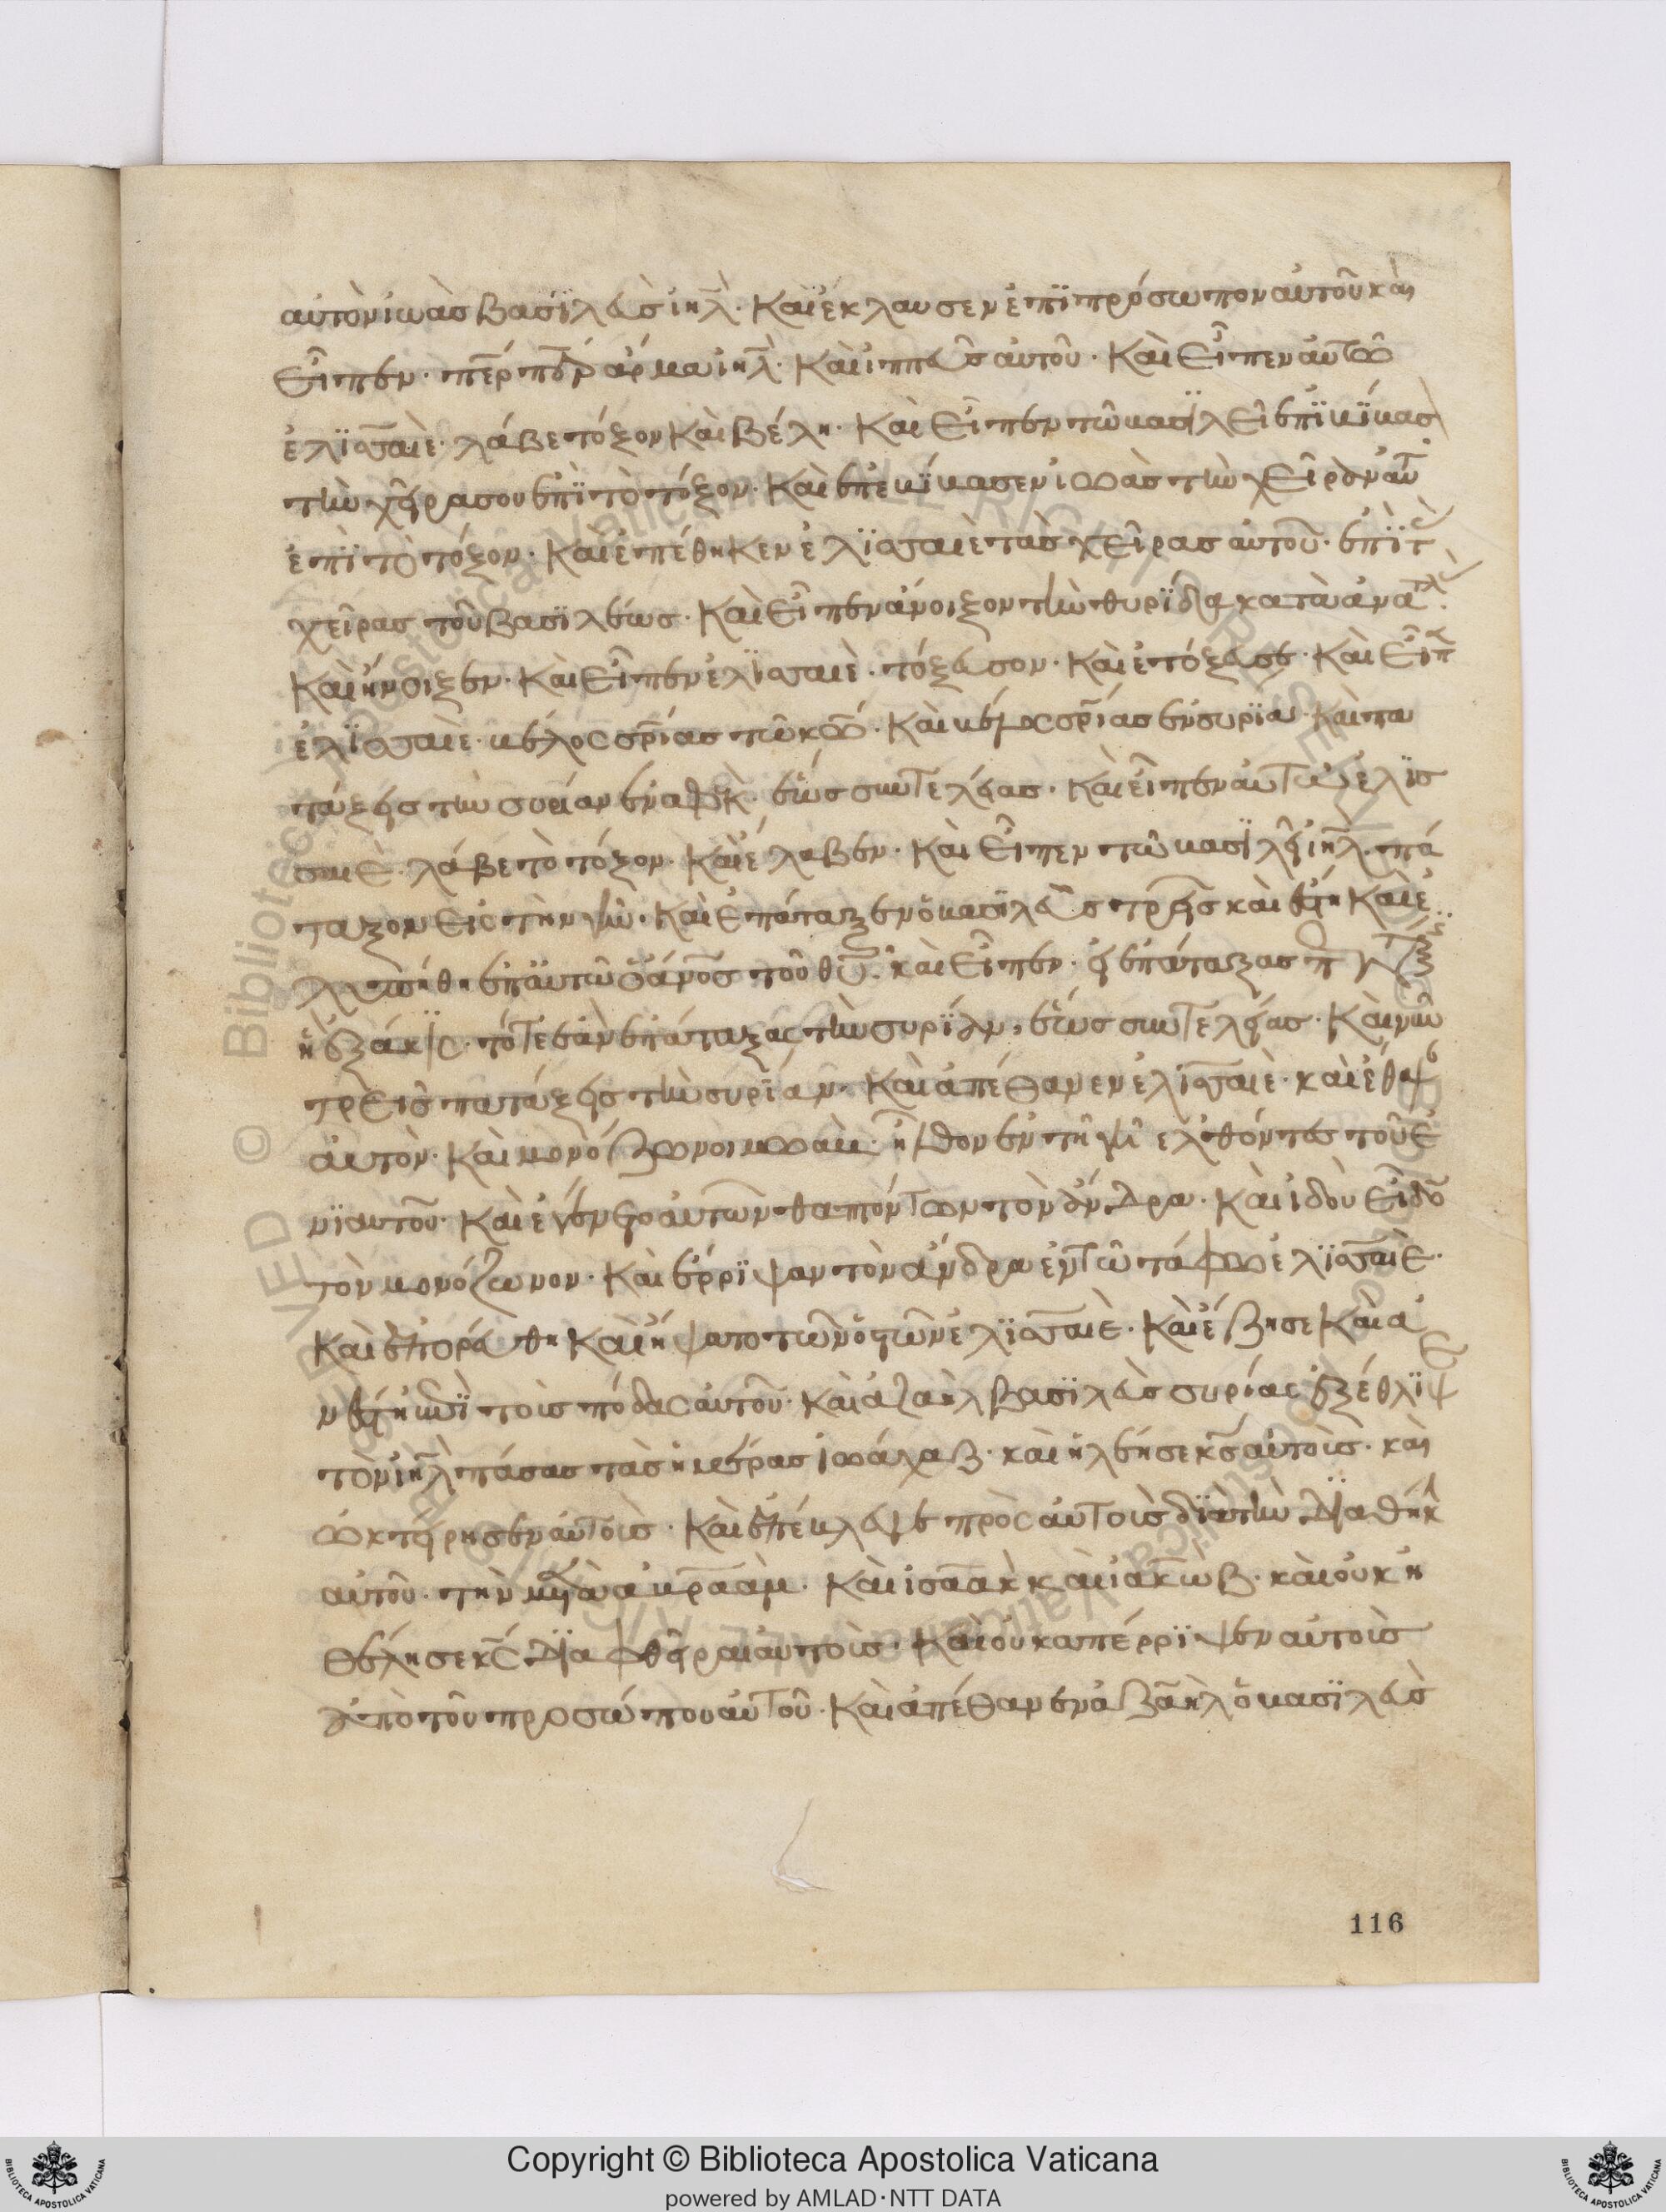 αὐτὸν ἰωὰσ βασϊλεὺσ ἰηλ̅. Καὶ ἔκλαυσεν ἐπϊ πρόσωπον αὐτοῦ κὰι
Εἶπεν· πε̅ρ πε̅ρ ἅρμα ἰηλ̅. Καὶ ἱππεῦσ αὐτοῦ. Καὶ Εἶπεν αὐτῶ
ἐλϊσσαιὲ· λάβε τόξον Καὶ βέλη. Καὶ Εἶπεν τῶ βασϊλεῖ ἐπϊβίβασ
τὴν χεῖρα σου ἐπϊ τὸ τόξον. Καὶ ἐπεβίβασεν ἰωὰσ τὴν χεῖρὸν αὐτ
ἐπϊ τὸ τόξον. Καὶ ἐπέθηκεν ἐλϊσσαιὲ τὰσ χεῖρασ αὐτοῦ. ἐπϊ τ
χεῖρασ τοῦ βασϊλέωσ. Καὶ Εἶπεν ἄνοιξον τὴν θυρϊδα κατὰ ἀνατλ
Καὶ ἤνοιξεν. Καὶ Εἶπεν ἐλϊσσαιὲ· τόξευσον. Καὶ ἐτόξευσε. Καὶ Εἶπ
ἐλϊσσαιὲ· βέλοσ σρ̅ίασ τῶ κω̅. Καὶ βέλοσ σρ̅ίασ ἐν συρϊα. Καὶ πα
τάξεισ τὴν συρίαν ἐν αφὲκ. ἕωσ συντελείασ. Καὶ εἶπεν αὐτῶ ἐλϊσ
σαιὲ. λάβε τὸ τόξον. Καὶ ἔλαβεν. Καὶ Εἶπεν τῶ βασϊλεῖ ἰηλ̅. πά
ταξον Εἰσ τὴν γῆν. Καὶ ἐπάταξεν ὁ βασϊλεῦσ τρεῖσ καὶ ἔστη Καὶ ἐ
λυπήθη ἐπ αὐτῶ ὁ ἄν̅οσ τοῦ θυ̅. καὶ Εἶπεν. εἰ ἐπάταξασ π
ἢ ἑξάκϊσ. τότε ἐὰν ἐπάταξασ τὴν συρϊαν, ἕωσ συντελείασ. Καὶ νῦν
τρΕῖσ πατάξεισ τὴν συρϊαν. Καὶ ἀπέθανεν ἐλϊσσαιὲ. καὶ ἔθαψ
ἀυτὸν. Καὶ μονόζωνοι μωὰμ. ἦλθον ἐν τῆ γῆ ἐλθόντεσ τοῦ ἐ
νϊαυτοῦ. Καὶ ἐγένετο αὐτῶν θαπτόντων τὸν ἄνδρα. Καὶ ἰδοὺ Εἶδο
τὸν μονόζωνον. Καὶ ἔρρϊψαν τὸν ἄνδρα ἐν τῶ τάφω ἐλϊσσαιὲ.
Καὶ ἐπορεύθη Καὶ ἥψατο τῶν ὀστῶν ἐλϊσσαιὲ. Καὶ ἔζησε Καὶ ἀ
νέστη ἐπϊ τοὺσ πόδασ αὐτοῦ. καὶ ἀζαὴλ βασϊλεὺσ συρίασ ἐξέθλϊψ
τὸν ἰηλ̅ πάσασ τὰσ ἡμέρασ ἰωάχαζ. καὶ ἠλέησε κσ̅ αὐτοὺσ. κὰι
ὠκτείρησεν αὐτοὺσ. Καὶ ἐπέβλεψε πρὸσ αὐτοὺσ δϊα τὴν Δϊαθήκ
αὐτοῦ. τὴν μετὰ αβρααμ. Καὶ ἰσαὰκ καὶ ἰακὼβ. καὶ οὐκ ἠ
θέλησε κσ̅ Δϊαφθεῖραι αὐτοὺσ. Καὶ οὐκ απέρρϊψεν αὐτοὺσ
ἀπὸ τοῦ προσώπου αὐτοῦ. Καὶ ἀπέθανεν ἀζαὴλ ὁ βασϊλεὺσ
116
Copyright © Biblioteca Apostolica Vaticana
powered by AMLAD·NTT DATA